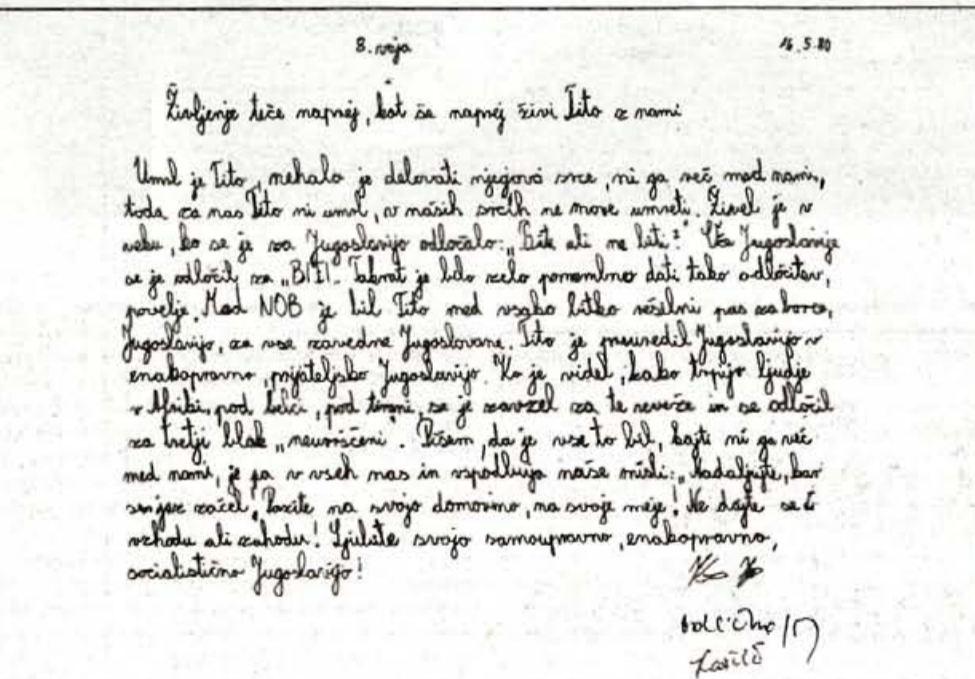 8. vaja 16.5.80
Življenje teče naprej, kot še naprej živi Tito z nami
Uml je Tito, nehalo je delovati njegovo srce, ni ga več med nami,
toda za nas Tito ni uml, v naših srcih ne more umreti. Živel je v
veku, ko se je za Jugoslavijo odločalo: „Biti ali ne biti?" Vse Jugoslavije
se je odločil za „BITI. Takrat je bilo zelo pomembno dati tako odločitev,
povelje. Med NOB je bil Tito med vsako bitko rešilni pas za borce,
Jugoslavijo, za vse zavedne Jugoslovane. Tito je preuredil Jugoslavijo v
enakopravno, prijateljsko Jugoslavijo. Ko je videl, kako trpijo ljudje
v Afriki, pod belci, pod tirani, se je zavzel za te reveže in se odločil
za tretji blok „neuvrščeni". Pišem, da je vse to bil, kajti ni ga več
med nami, je pa v vseh nas in vspodbuja naše misli: „Nadaljujte, kar
sem jaz začel, Pazite na svojo domovino, na svoje meje! Ne dajte se
vzhodu ali zahodu! Ljubite svojo samoupravno, enakopravno,
socialistično Jugoslavijo!
odlično